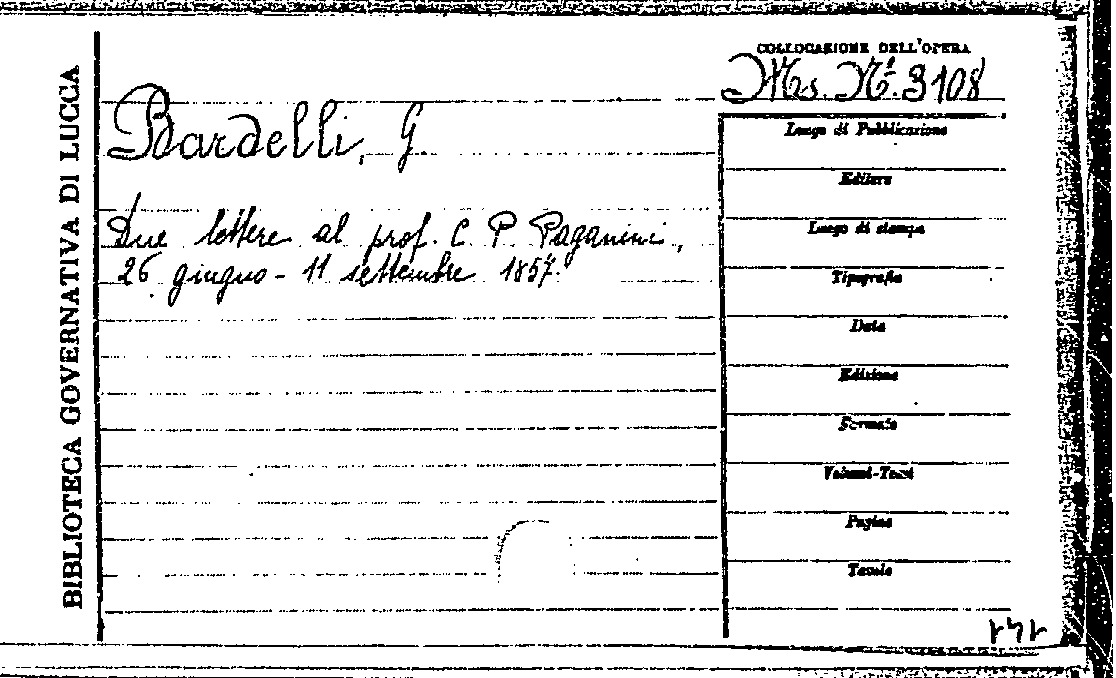 BIBLIOTECA GOVERNATIVA DI LUCCA
COLLOCAZIONE DELL'OPERA
Ms. N.º 3108
Bardelli, G.
Due lettere al prof. C. P. Paganini,
26 giugno - 11 settembre 1857.
Luogo di Pubblicazione
Editore
Luogo di stampa
Tipografia
Data
Edizione
Formato
Volumi-Tomi
Pagine
Tavole